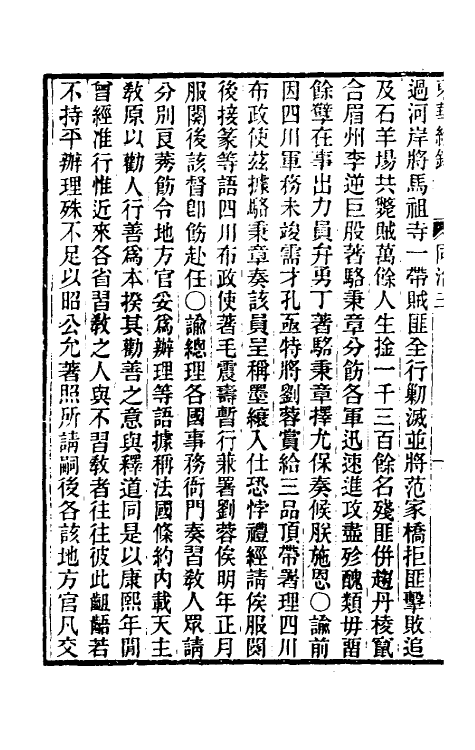 過河岸將馬祖寺一帶賊匪全行勦滅並將范家橋拒匪擊敗追
及石羊場共斃賊萬餘人生擒一千三百餘名殘匪併趨丹棱竄
合眉州李逆巨股著駱秉章分飭各軍迅速進攻盡殄醜類毋畱
餘孽在事出力員弁勇丁著駱秉章擇尤保奏候朕施恩〇諭前
因四川軍務未竣需才孔亟特將劉蓉賞給三品頂帶署理四川
布政使茲據駱秉章奏該員呈稱墨縗入仕恐悖禮經請俟服闋
後接篆等語四川布政使著毛震壽暫行兼署劉蓉俟明年正月
服闋後該督卽飭赴任〇諭總理各國事務衙門奏習敎人眾請
分別良莠飭令地方官妥爲辦理等語據稱法國條約內載天主
敎原以勸人行善爲本揆其勸善之意與釋道同是以康熙年閒
曾經准行惟近來各省習敎之人與不習敎者往往彼此齟齬若
不持平辦理殊不足以昭公允著照所請嗣後各該地方官凡交